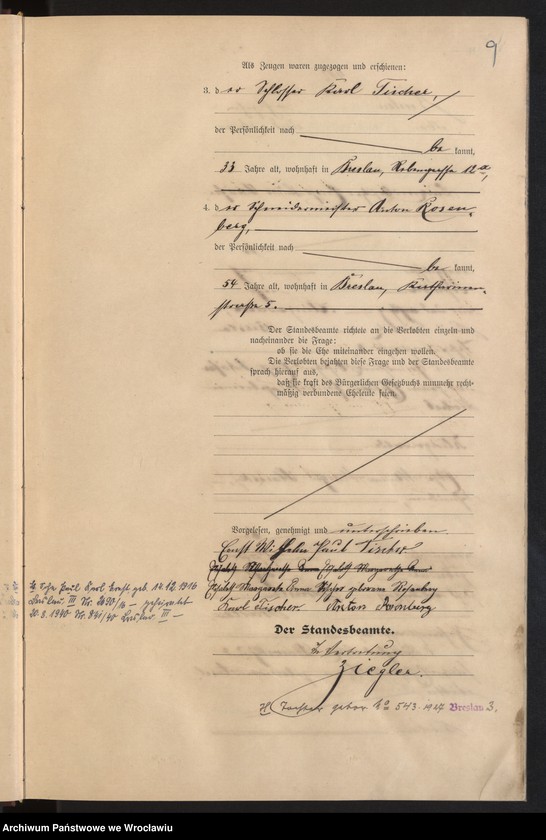 9
Als Zeugen waren zugezogen und erschienen:
3. der Schlosser Karl Fischer,
der Persönlichkeit nach
be kannt,
33 Jahre alt, wohnhaft in Breslau, 12a,
4. der Schneidermeister Anton Rosen-
berg,
der Persönlichkeit nach
be kannt,
54 Jahre alt, wohnhaft in Breslau, Katharinen-
straße 5.
Der Standesbeamte richtete an die Verlobten einzeln und
nacheinander die Frage:
ob sie die Ehe miteinander eingehen wollen.
Die Verlobten bejahten diese Frage und der Standesbeamte
sprach hierauf aus,
daß sie kraft des Bürgerlichen Gesetzbuchs nunmehr recht-
mäßig verbundene Eheleute seien.
Vorgelesen, genehmigt und unterschrieben
Ernst Wilhelm Paul Fischer
Margarete Emma Fischer geborene Rosenberg
Karl Fischer Anton Rosenberg
Der Standesbeamte.
In Vertretung
Ziegler.
Paul Karl Ernst geb. 14.12.1916
Breslau III Nr. geheiratet
20.8.1940 Nr. 941/40 Breslau III
Tochter gebor. No 543.1927 Breslau 3.
Archiwum Państwowe we Wrocławiu